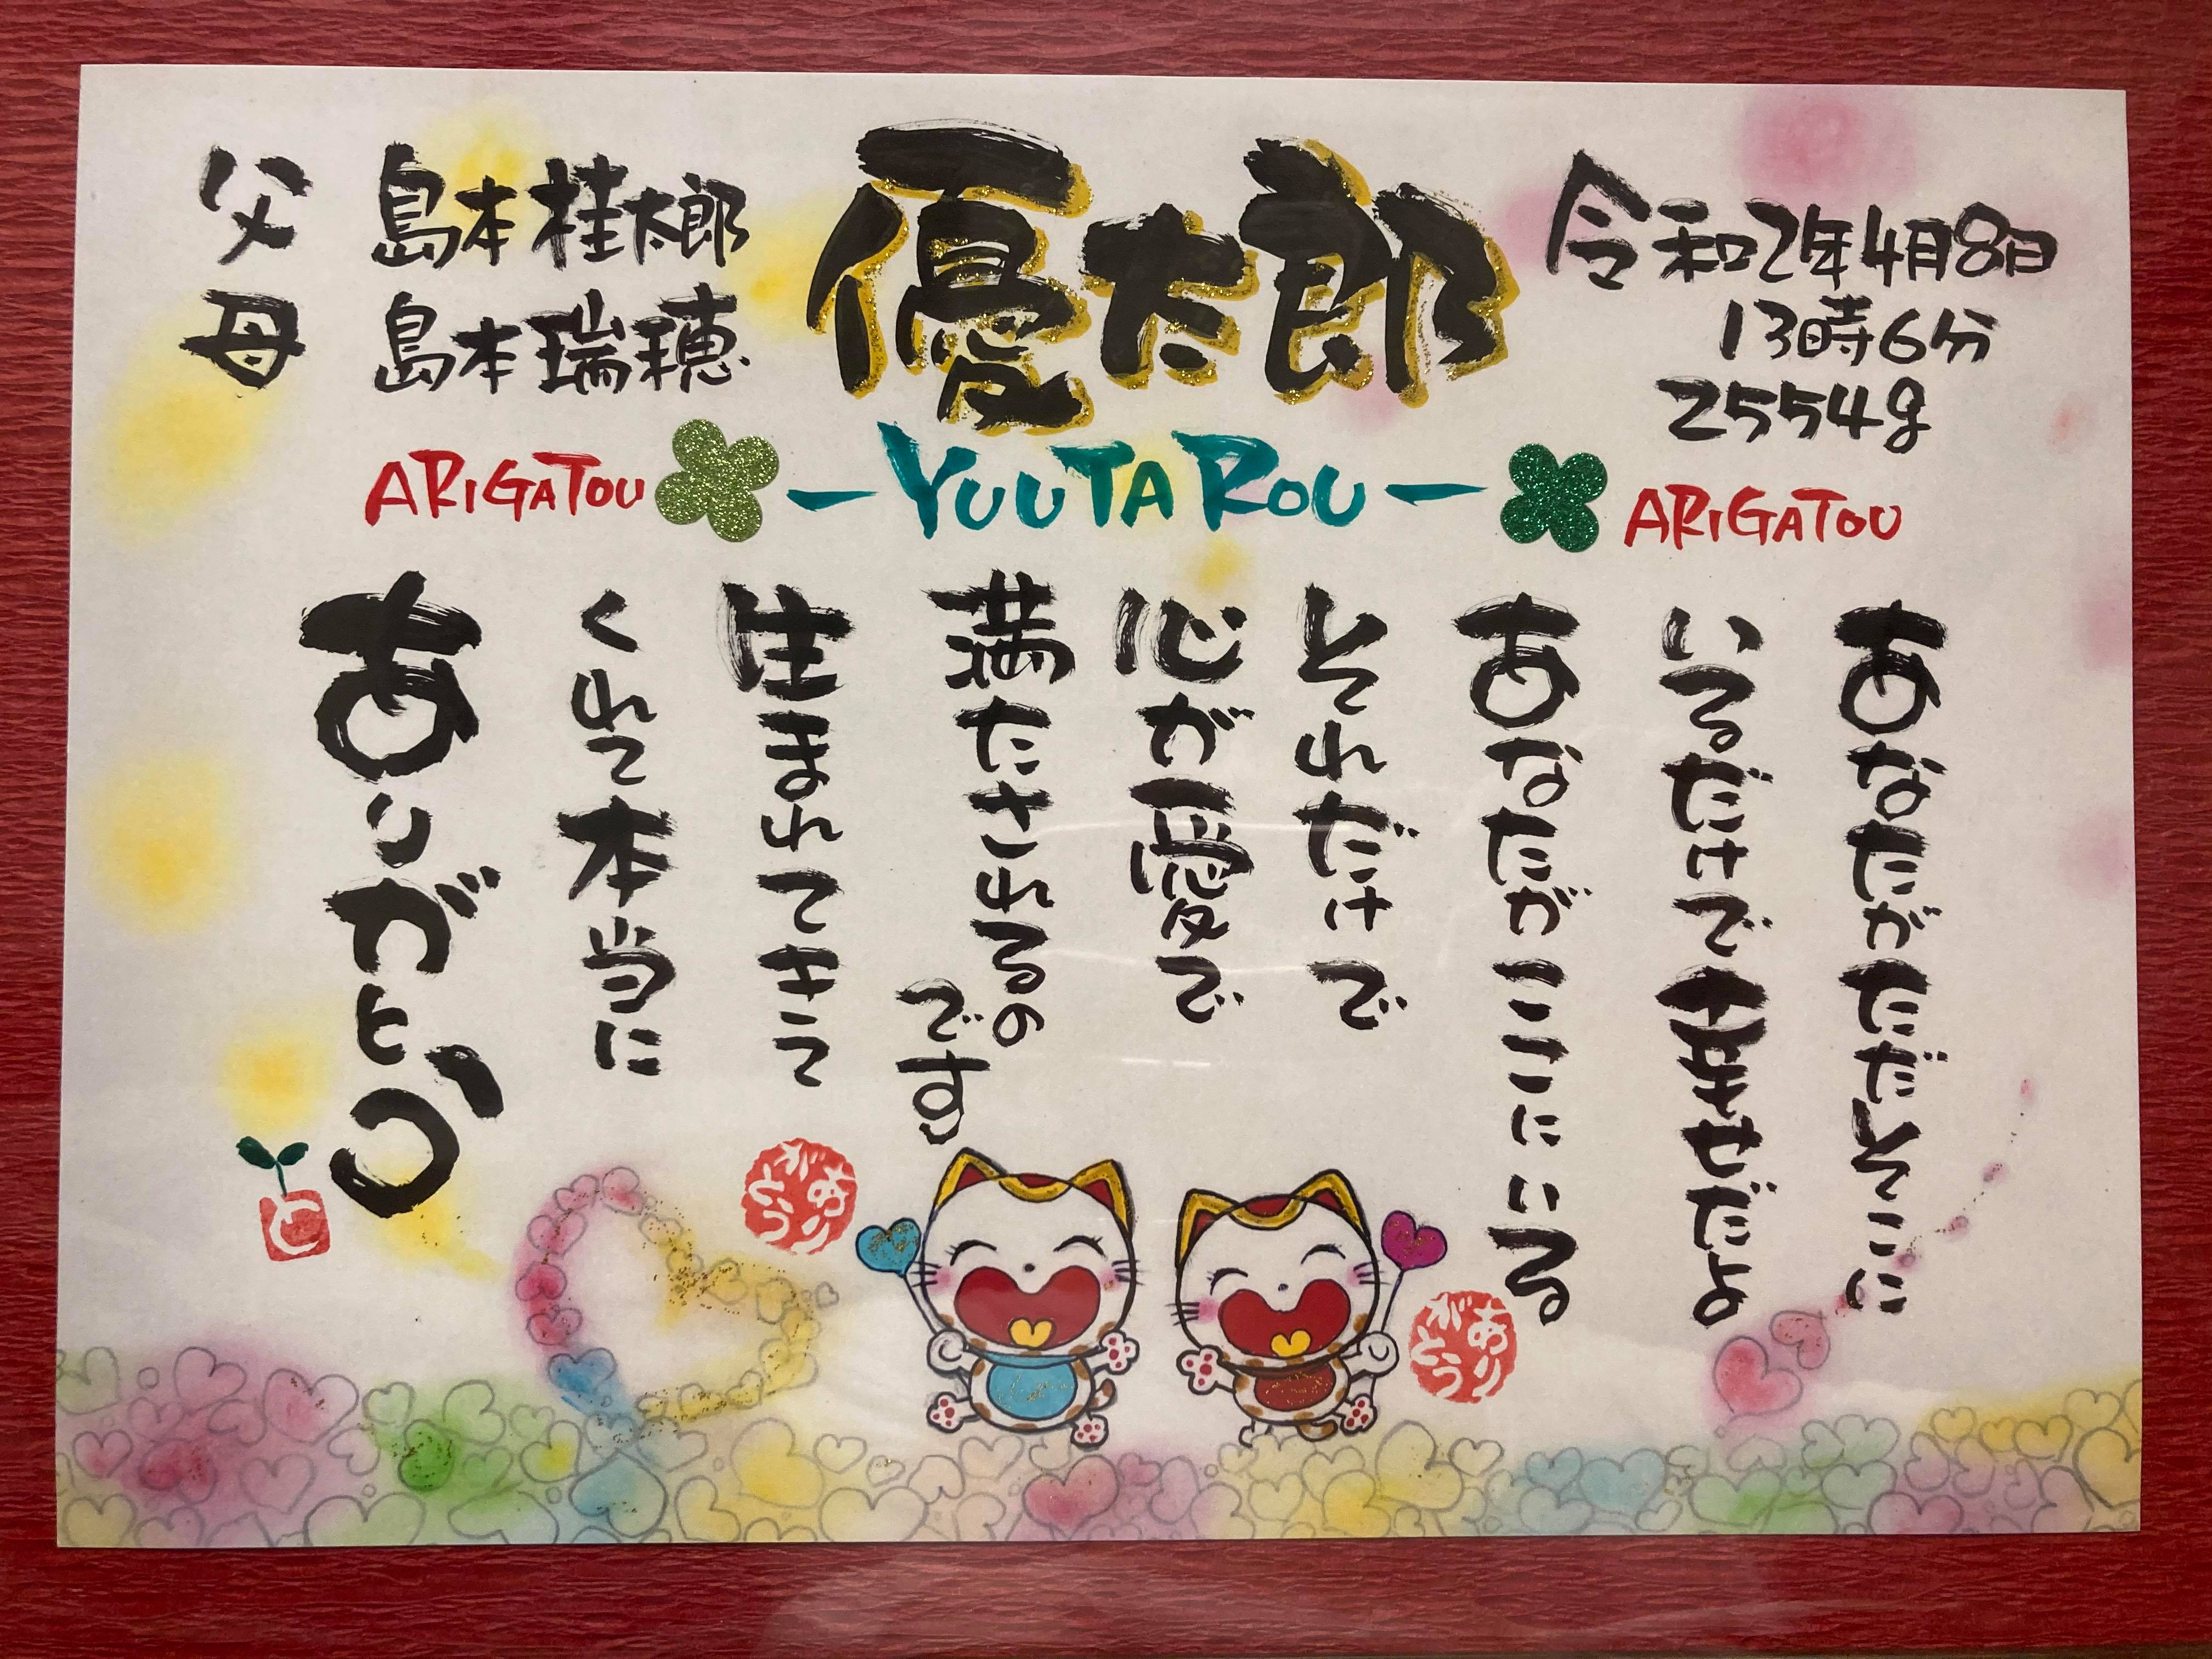 父 島本桂太郎
母 島本瑞穂
優太郎
令和2年4月8日
13時6分
2554g
ARIGATOU
-YUUTAROU-
ARIGATOU
あなたがただそこに
いるだけで幸せだよ
あなたがここにいる
それだけで
心が愛で
満たされるの
です
生まれてきて
くれて本当に
ありがとう
ありがとう
ありがとう
と